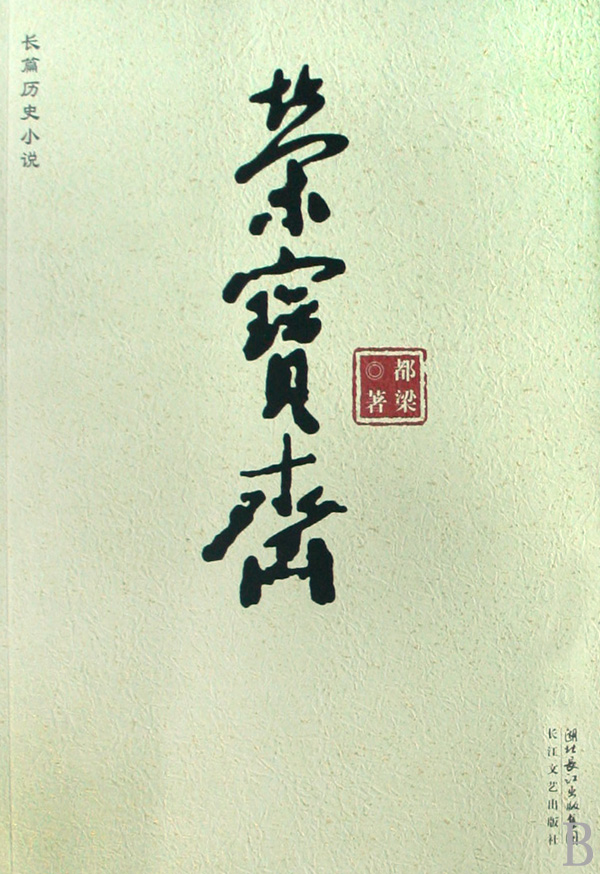 长篇历史小说
荣寶齋
都梁
◎著
湖北长江出版集团
长江文艺出版社
B